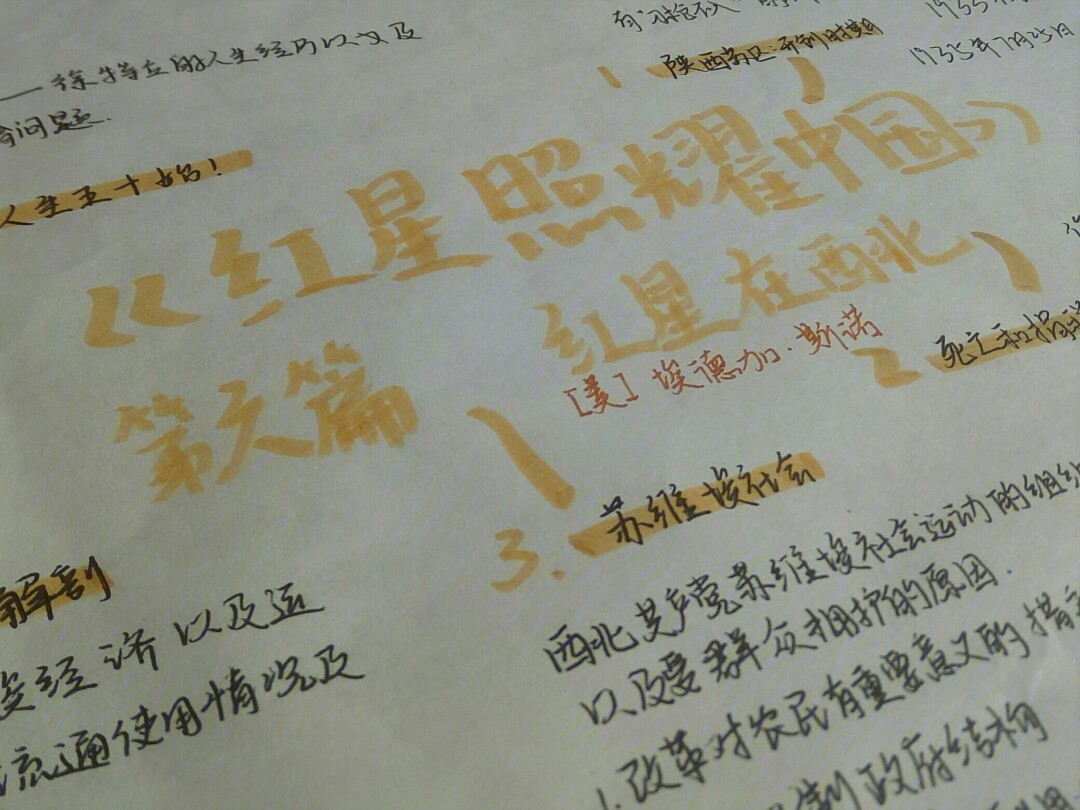 ——徐特立的人生经历以及
问题.
人生五十始！
1935年7月25日
1 陕西苏区：开创时期
《红星照耀中国》
第六篇 红星在西北
[美]埃德加·斯诺
2 死亡和捐
解剖
经济以及运
流通使用情况及
3. 苏维埃社会
西北共产党苏维埃社会运动的组织
以及受群众拥护的原因.
1.改革对农民有重要意义的措
制政府结构